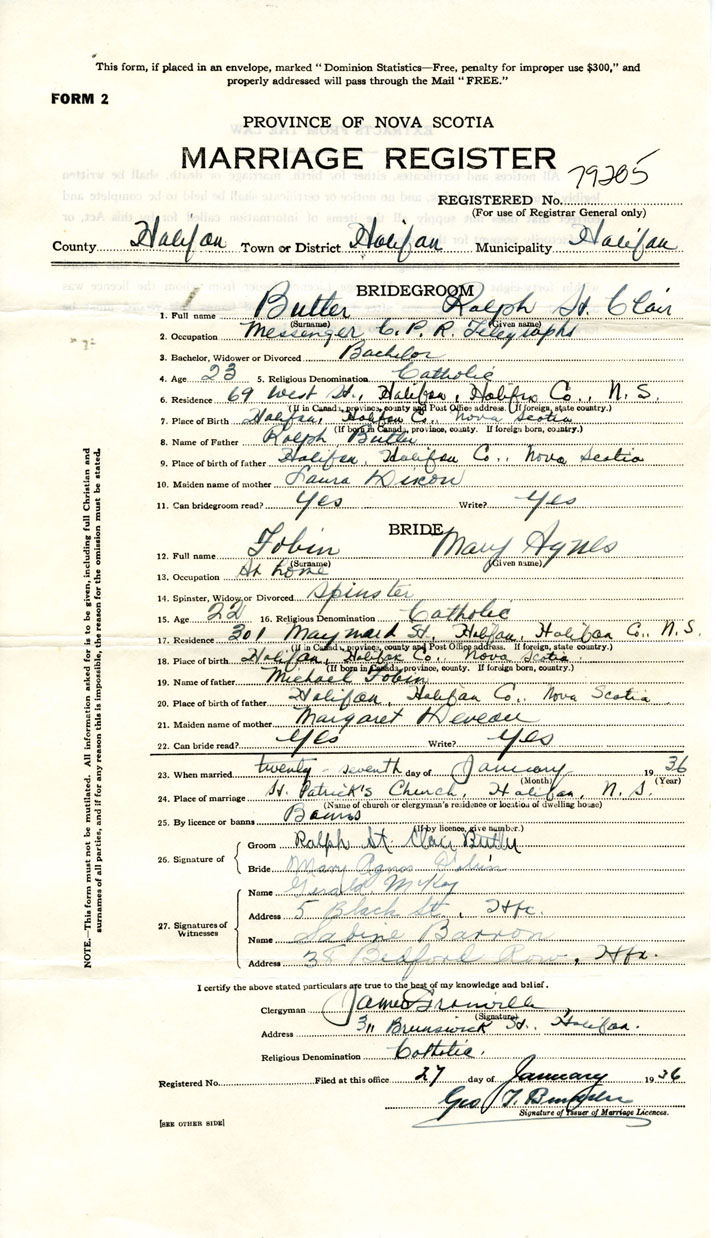 This form, if placed in an envelope, marked “Dominion Statistics—Free, penalty for improper use $300,” and
properly addressed will pass through the Mail “FREE.”
FORM 2
PROVINCE OF NOVA SCOTIA
MARRIAGE REGISTER
REGISTERED No. 79205
(For use of Registrar General only)
County Halifax Town or District Halifax Municipality Halifax
BRIDEGROOM
1. Full name Butler Ralph St. Clair
(Surname) (Given name)
2. Occupation Messenger C. P. R. Telegraphs
3. Bachelor, Widower or Divorced Bachelor
4. Age 23 5. Religious Denomination Catholic
6. Residence 69 West St., Halifax, Halifax Co., N. S.
(If in Canada, province, county and Post Office address. If foreign, state country.)
7. Place of Birth Halifax, Halifax Co., Nova Scotia
(If born in Canada, province, county. If foreign born, country.)
8. Name of Father Ralph Butler
9. Place of birth of father Halifax, Halifax Co., Nova Scotia
10. Maiden name of mother Laura Dixon
11. Can bridegroom read? Yes Write? Yes
BRIDE
12. Full name Tobin Mary Agnes
(Surname) (Given name)
13. Occupation At home
14. Spinster, Widow or Divorced Spinster
15. Age 22 16. Religious Denomination Catholic
17. Residence 301 Maynard St., Halifax, Halifax Co., N. S.
(If in Canada, province, county and Post Office address. If foreign, state country.)
18. Place of birth Halifax, Halifax Co., Nova Scotia
(If born in Canada, province, county. If foreign born, country.)
19. Name of father Michael Tobin
20. Place of birth of father Halifax, Halifax Co., Nova Scotia
21. Maiden name of mother Margaret Deveau
22. Can bride read? Yes Write? Yes
23. When married twenty-seventh day of January 1936
(Month) (Year)
24. Place of marriage St. Patrick's Church, Halifax, N. S.
(Name of church or clergyman's residence or location of dwelling house)
25. By licence or banns Banns
(If by licence, give number.)
26. Signature of
Groom Ralph St. Clair Butler
Bride Mary Agnes Tobin
27. Signatures of Witnesses
Name Gerald McKay
Address 5 Black St., Hfx.
Name Sabine Barron
Address 38 Bedford Row, Hfx.
I certify the above stated particulars are true to the best of my knowledge and belief.
Clergyman James Granville
(Signature)
Address 311 Brunswick St. Halifax.
Religious Denomination Catholic.
Registered No. Filed at this office 27 day of January 1936
Geo T.
Signature of Issuer of Marriage Licences.
[SEE OTHER SIDE]
NOTE.—This form must not be mutilated. All information asked for is to be given, including full Christian and
surnames of all parties, and if for any reason this is impossible, the reason for the omission must be stated.